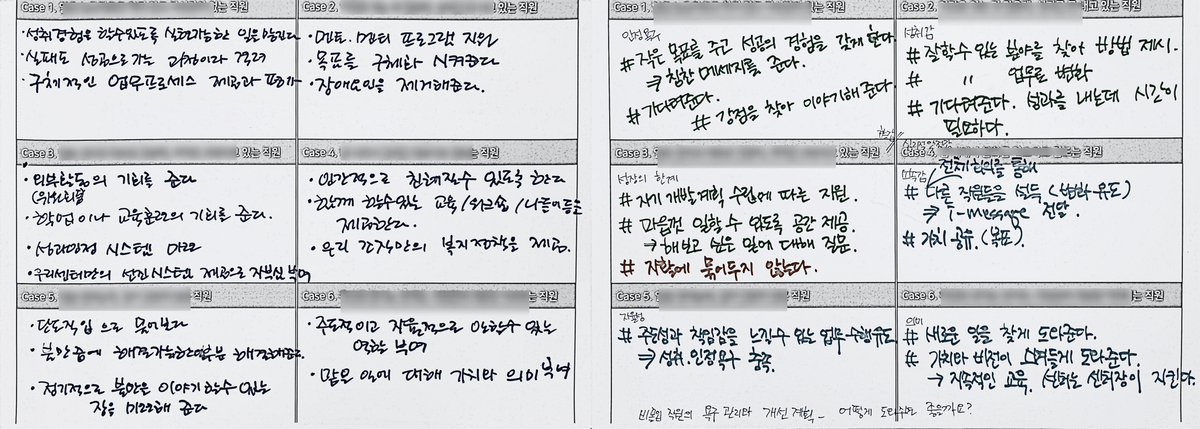 Case 1.
있는 직원
· 성취경험을 할수있도록 실현가능한 일을 맡긴다
· 실패도 성공으로 가는 과정이라 격려
· 구체적인 업무프로세스 제공과 평가
Case 2.
있는 직원
· 멘토. 멘티 프로그램 지원
· 목표를 구체화 시켜준다
· 장애요인을 제거해준다.
Case 3.
있는 직원
· 외부활동의 기회를 준다
· 학업이나 교육훈련의 기회를 준다.
· 성과인정 시스템 마련
· 우리센터만의 선진시스템 제공으로 자부심 부여
Case 4.
직원
· 인간적으로 친해질수 있도록 한다
· 함께 할수있는 교육/워크숍/나들이등을
제공한다
· 우리 간식만의 복지정책을 제공.
Case 5.
직원
· 단도직입으로 물어보다
· 불만중에 해결가능한부분 해결해준다.
· 정기적으로 불만을 이야기 할수 있는
장을 마련해 준다
Case 6.
는 직원
· 주도적이고 자율적으로 일할수 있는
역할 부여
· 맡은 일에 대해 가치와 의미 부여
Case 1.
있는 직원
인정욕구
# 작은 목표를 주고 성공의 경험을 갖게 한다
⇒ 칭찬 메세지를 준다.
# 기다려준다.
# 강점을 찾아 이야기해준다.
Case 2.
있는 직원
성취감
# 잘할수 있는 분야를 찾아 방법 제시.
# 〃 업무로 변화
# 기다려준다. 성과를 내는데 시간이
필요하다.
Case 3.
있는 직원
성장의 한계
# 자기개발계획 수립에 따른 지원.
# 마음껏 일할 수 있도록 공간 제공.
→ 해보고 싶은 일에 대해 질문.
# 자할에 묶어두지 않는다.
Case 4.
직원
소속감
전체회의를 통해
# 다른 직원들을 설득 (변화유도)
⇒ I-message 전달.
# 가치 공유. (목표).
Case 5.
직원
자율성
# 주도성과 책임감을 느낄수 있는 업무수행유도
⇒ 성취. 인정욕구 충족.
Case 6.
는 직원
의미
# 새로운 일을 찾게 도와준다.
# 가치와 비전이 스며들게 도와준다.
→ 지속적인 교육.
직원의 욕구 관리와 개선 계획 - 어떻게 도와주면 좋을까요?